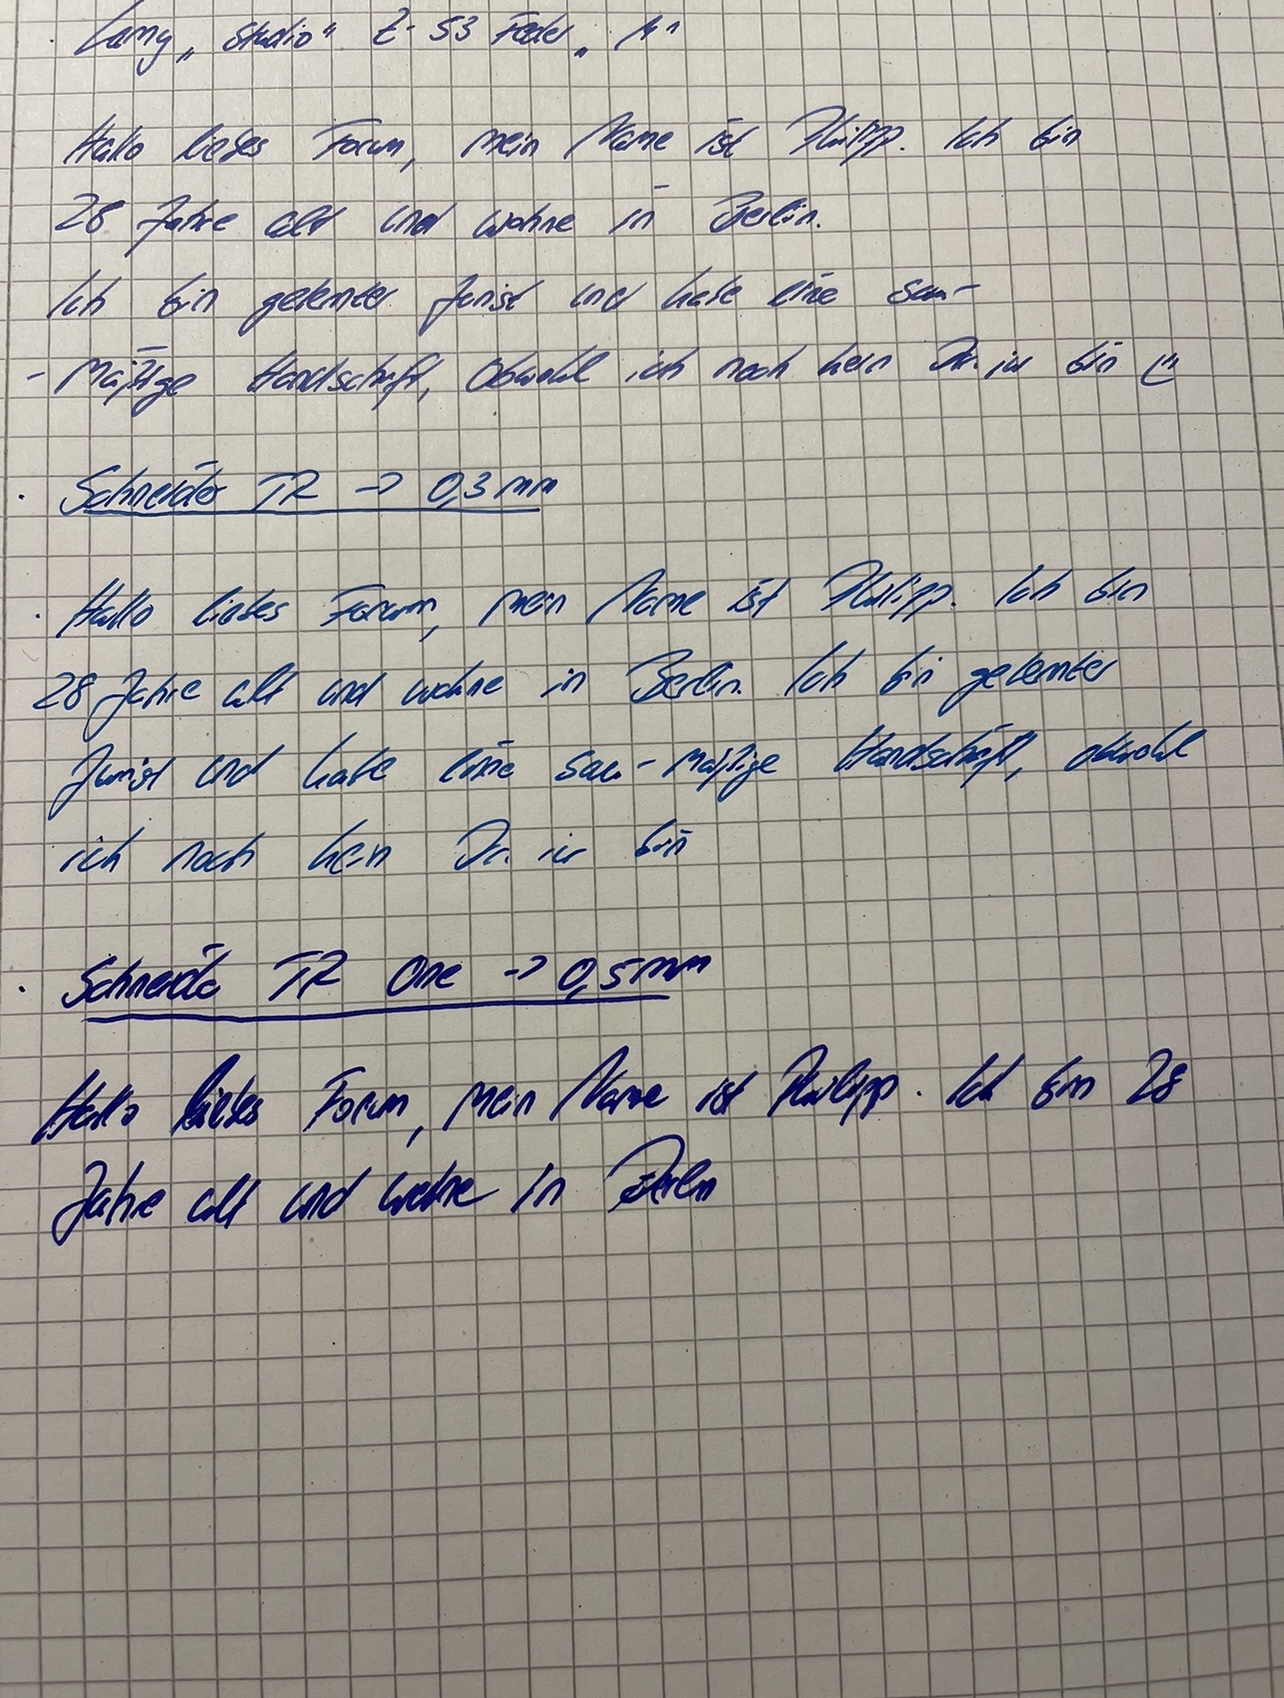 · Lamy „Studio“ Z-53 Feder „M“
Hallo liebes Forum, mein Name ist Philipp. Ich bin
28 Jahre alt und wohne in Berlin.
Ich bin gelernter Jurist und habe eine sau-
- mäßige Handschrift, obwohl ich noch kein Dr. iur bin (:
· Schneider TR -> 0,3 mm
· Hallo liebes Forum, mein Name ist Philipp. Ich bin
28 Jahre alt und wohne in Berlin. Ich bin gelernter
Jurist und habe eine sau-mäßige Handschrift, obwohl
ich noch kein Dr. iur bin
· Schneider TR One -> 0,5 mm
Hallo liebes Forum, mein Name ist Philipp. Ich bin 28
Jahre alt und wohne in Berlin